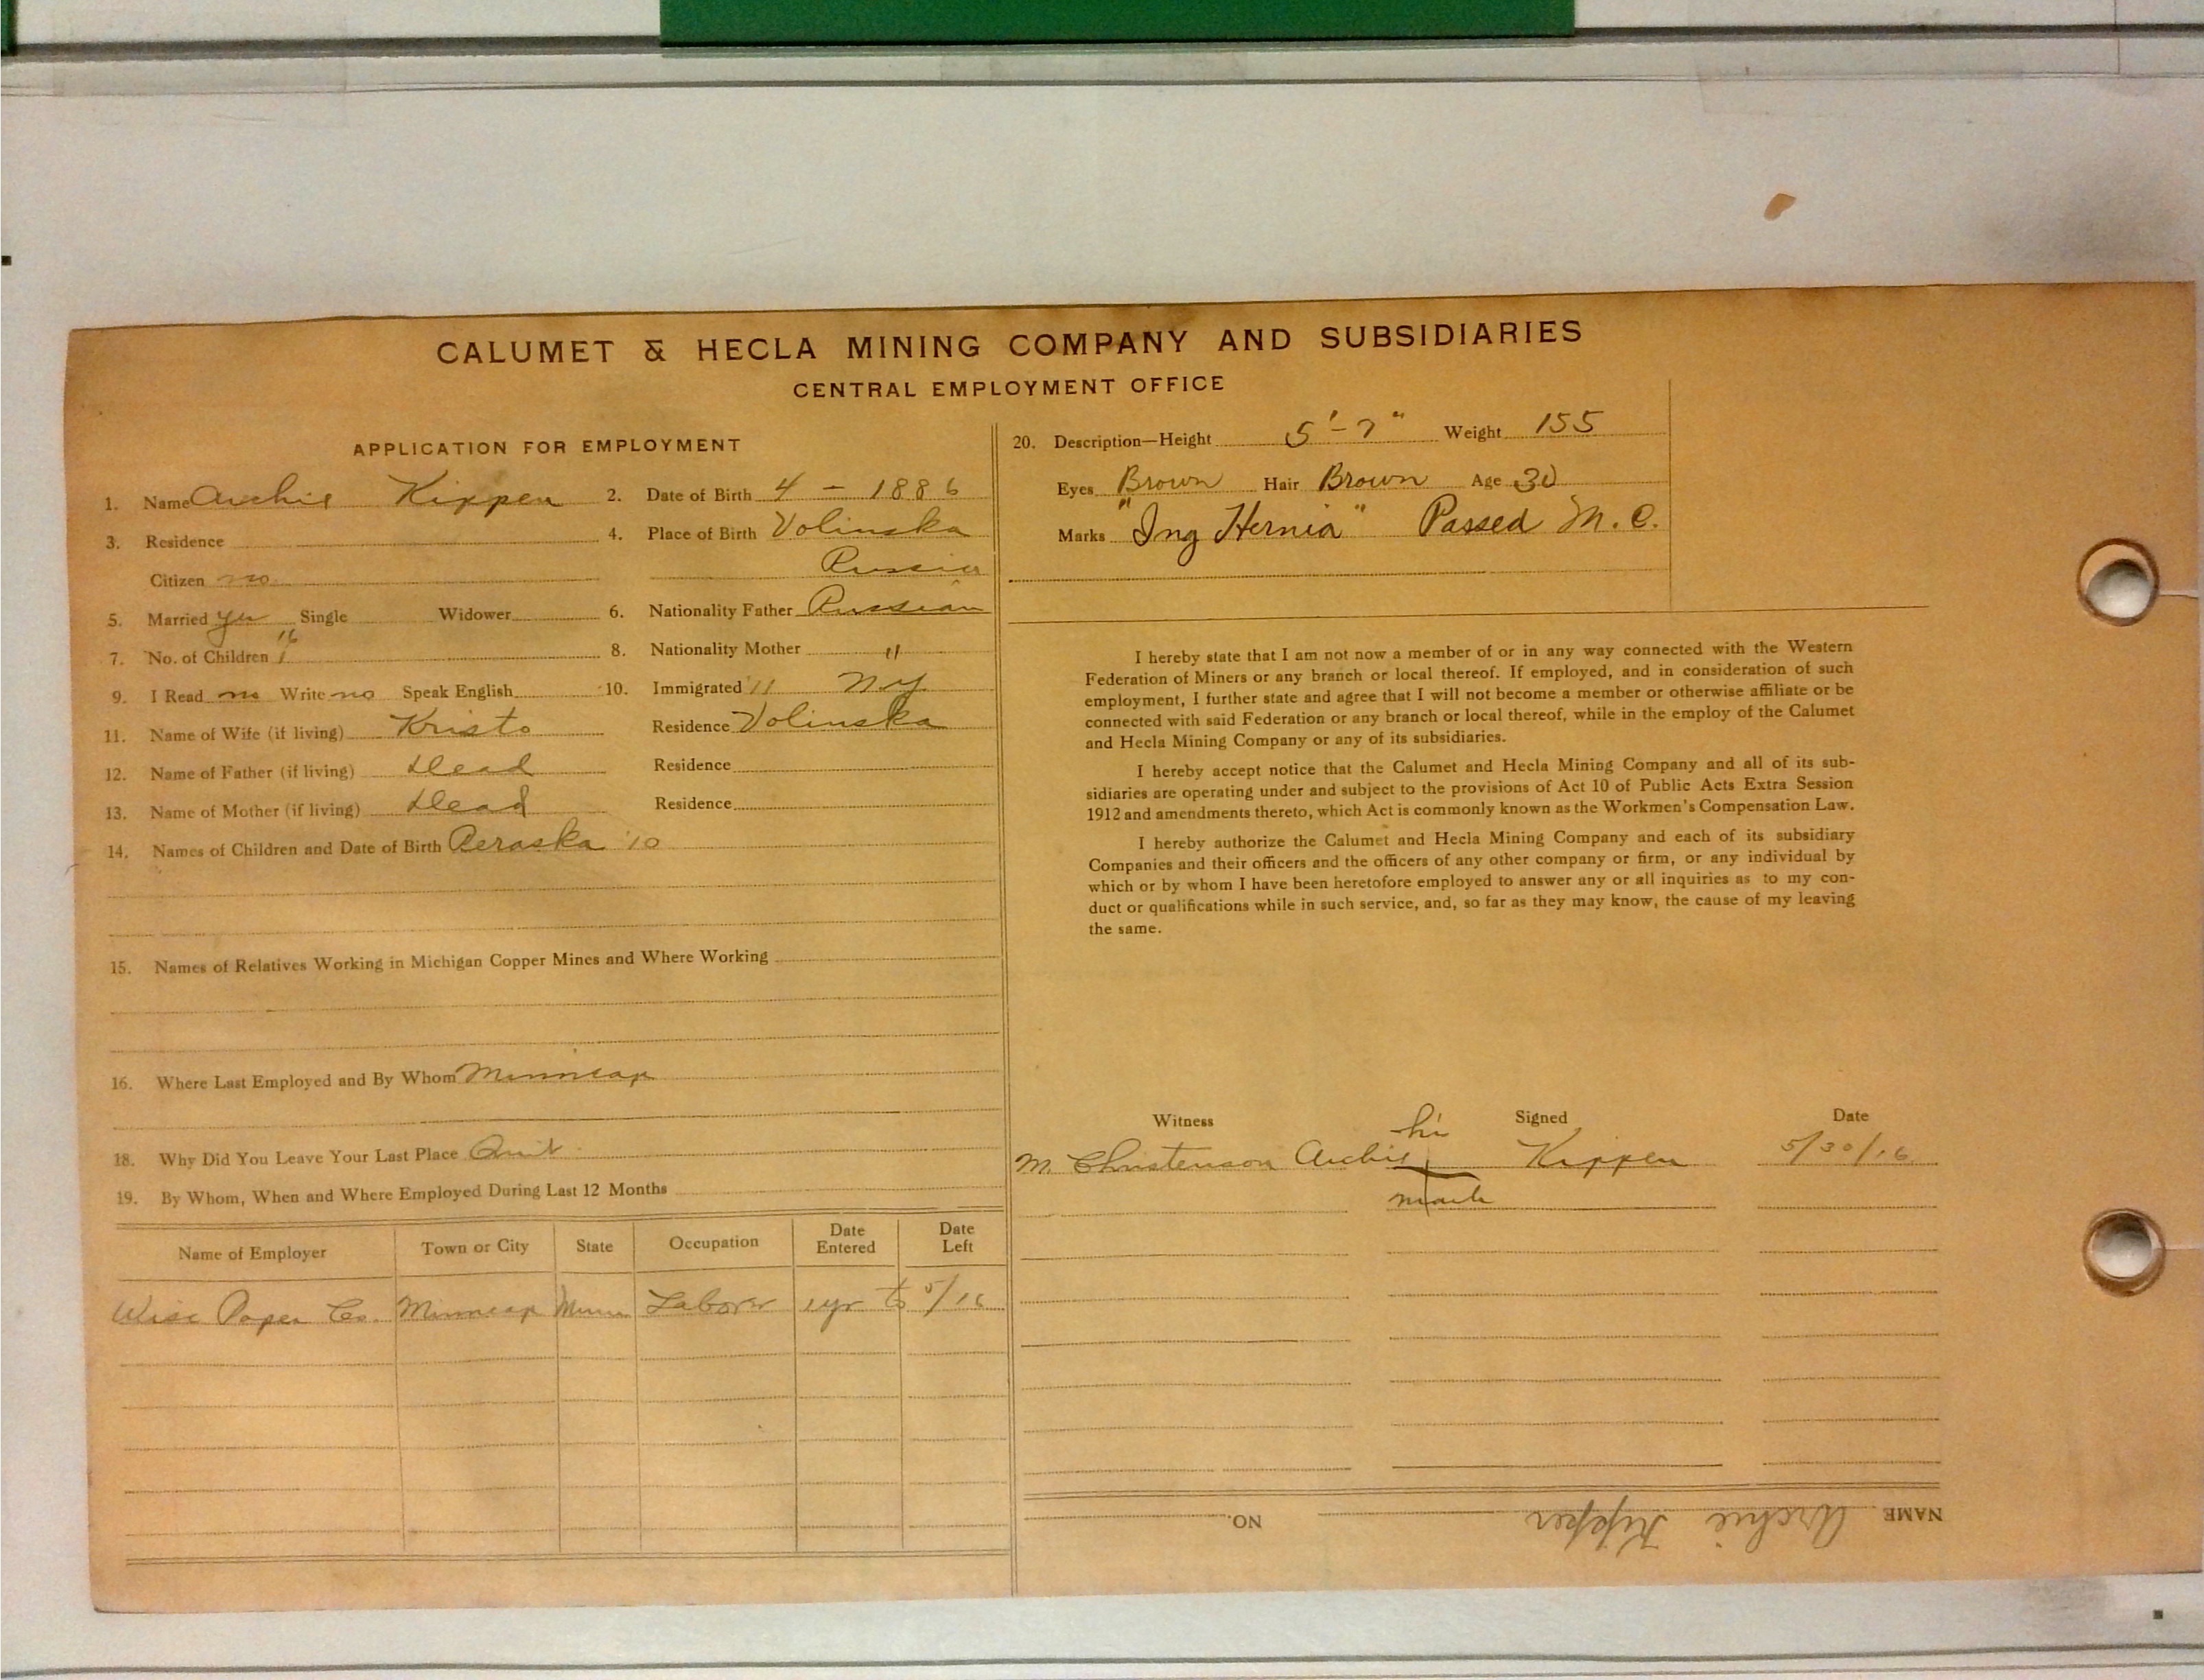 CALUMET & HECLA MINING COMPANY AND SUBSIDIARIES
CENTRAL EMPLOYMENT OFFICE
APPLICATION FOR EMPLOYMENT
1. Name Archie Kippen 2. Date of Birth 4 - 1886
3. Residence 4. Place of Birth Volinska
Citizen no Russia
5. Married yes Single Widower 6. Nationality Father Russian
7. No. of Children 1 8. Nationality Mother "
9. I Read no Write no Speak English 10. Immigrated '11 NY
11. Name of Wife (if living) Kristo Residence Volinska
12. Name of Father (if living) Dead Residence
13. Name of Mother (if living) Dead Residence
14. Names of Children and Date of Birth Peraska '10
15. Names of Relatives Working in Michigan Copper Mines and Where Working
16. Where Last Employed and By Whom Minneap
18. Why Did You Leave Your Last Place Quit
19. By Whom, When and Where Employed During Last 12 Months
Name of Employer Town or City State Occupation Date Entered Date Left
Wisc Paper Co. Minneap Minn Laborer 1yr to 5/16
20. Description—Height 5'-7" Weight 155
Eyes Brown Hair Brown Age 30
Marks "Ing Hernia" Passed M.C.
I hereby state that I am not now a member of or in any way connected with the Western
Federation of Miners or any branch or local thereof. If employed, and in consideration of such
employment, I further state and agree that I will not become a member or otherwise affiliate or be
connected with said Federation or any branch or local thereof, while in the employ of the Calumet
and Hecla Mining Company or any of its subsidiaries.
I hereby accept notice that the Calumet and Hecla Mining Company and all of its sub-
sidiaries are operating under and subject to the provisions of Act 10 of Public Acts Extra Session
1912 and amendments thereto, which Act is commonly known as the Workmen's Compensation Law.
I hereby authorize the Calumet and Hecla Mining Company and each of its subsidiary
Companies and their officers and the officers of any other company or firm, or any individual by
which or by whom I have been heretofore employed to answer any or all inquiries as to my con-
duct or qualifications while in such service, and, so far as they may know, the cause of my leaving
the same.
Witness Signed Date
his
M. Christenson Archie Kippen 5/30/16
mark
NAME Archie Kippen NO.